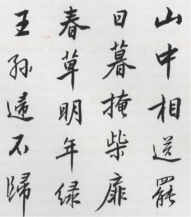 山中相送罷
日暮掩柴扉
春草明年绿
王孫遠不歸